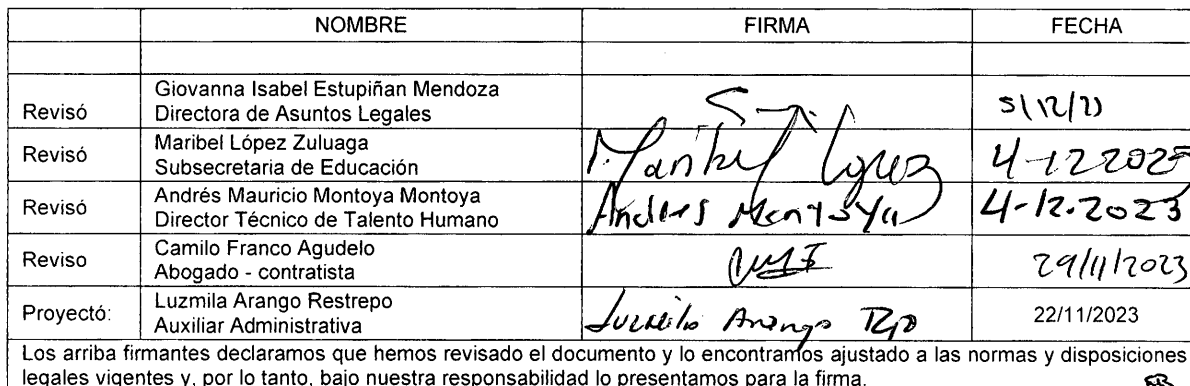 NOMBRE FIRMA FECHA
Giovanna Isabel Estupiñan Mendoza
Revisó Directora de Asuntos Legales 5/12/23
Maribel López Zuluaga
Revisó Subsecretaria de Educación Maribel López 4-12 2023
Andrés Mauricio Montoya Montoya
Revisó Director Técnico de Talento Humano Andrés Montoya 4-12-2023
Camilo Franco Agudelo
Reviso Abogado - contratista 29/11/2023
Luzmila Arango Restrepo
Proyectó: Auxiliar Administrativa Luzmila Arango Rpo 22/11/2023
Los arriba firmantes declaramos que hemos revisado el documento y lo encontramos ajustado a las normas y disposiciones
legales vigentes y, por lo tanto, bajo nuestra responsabilidad lo presentamos para la firma.